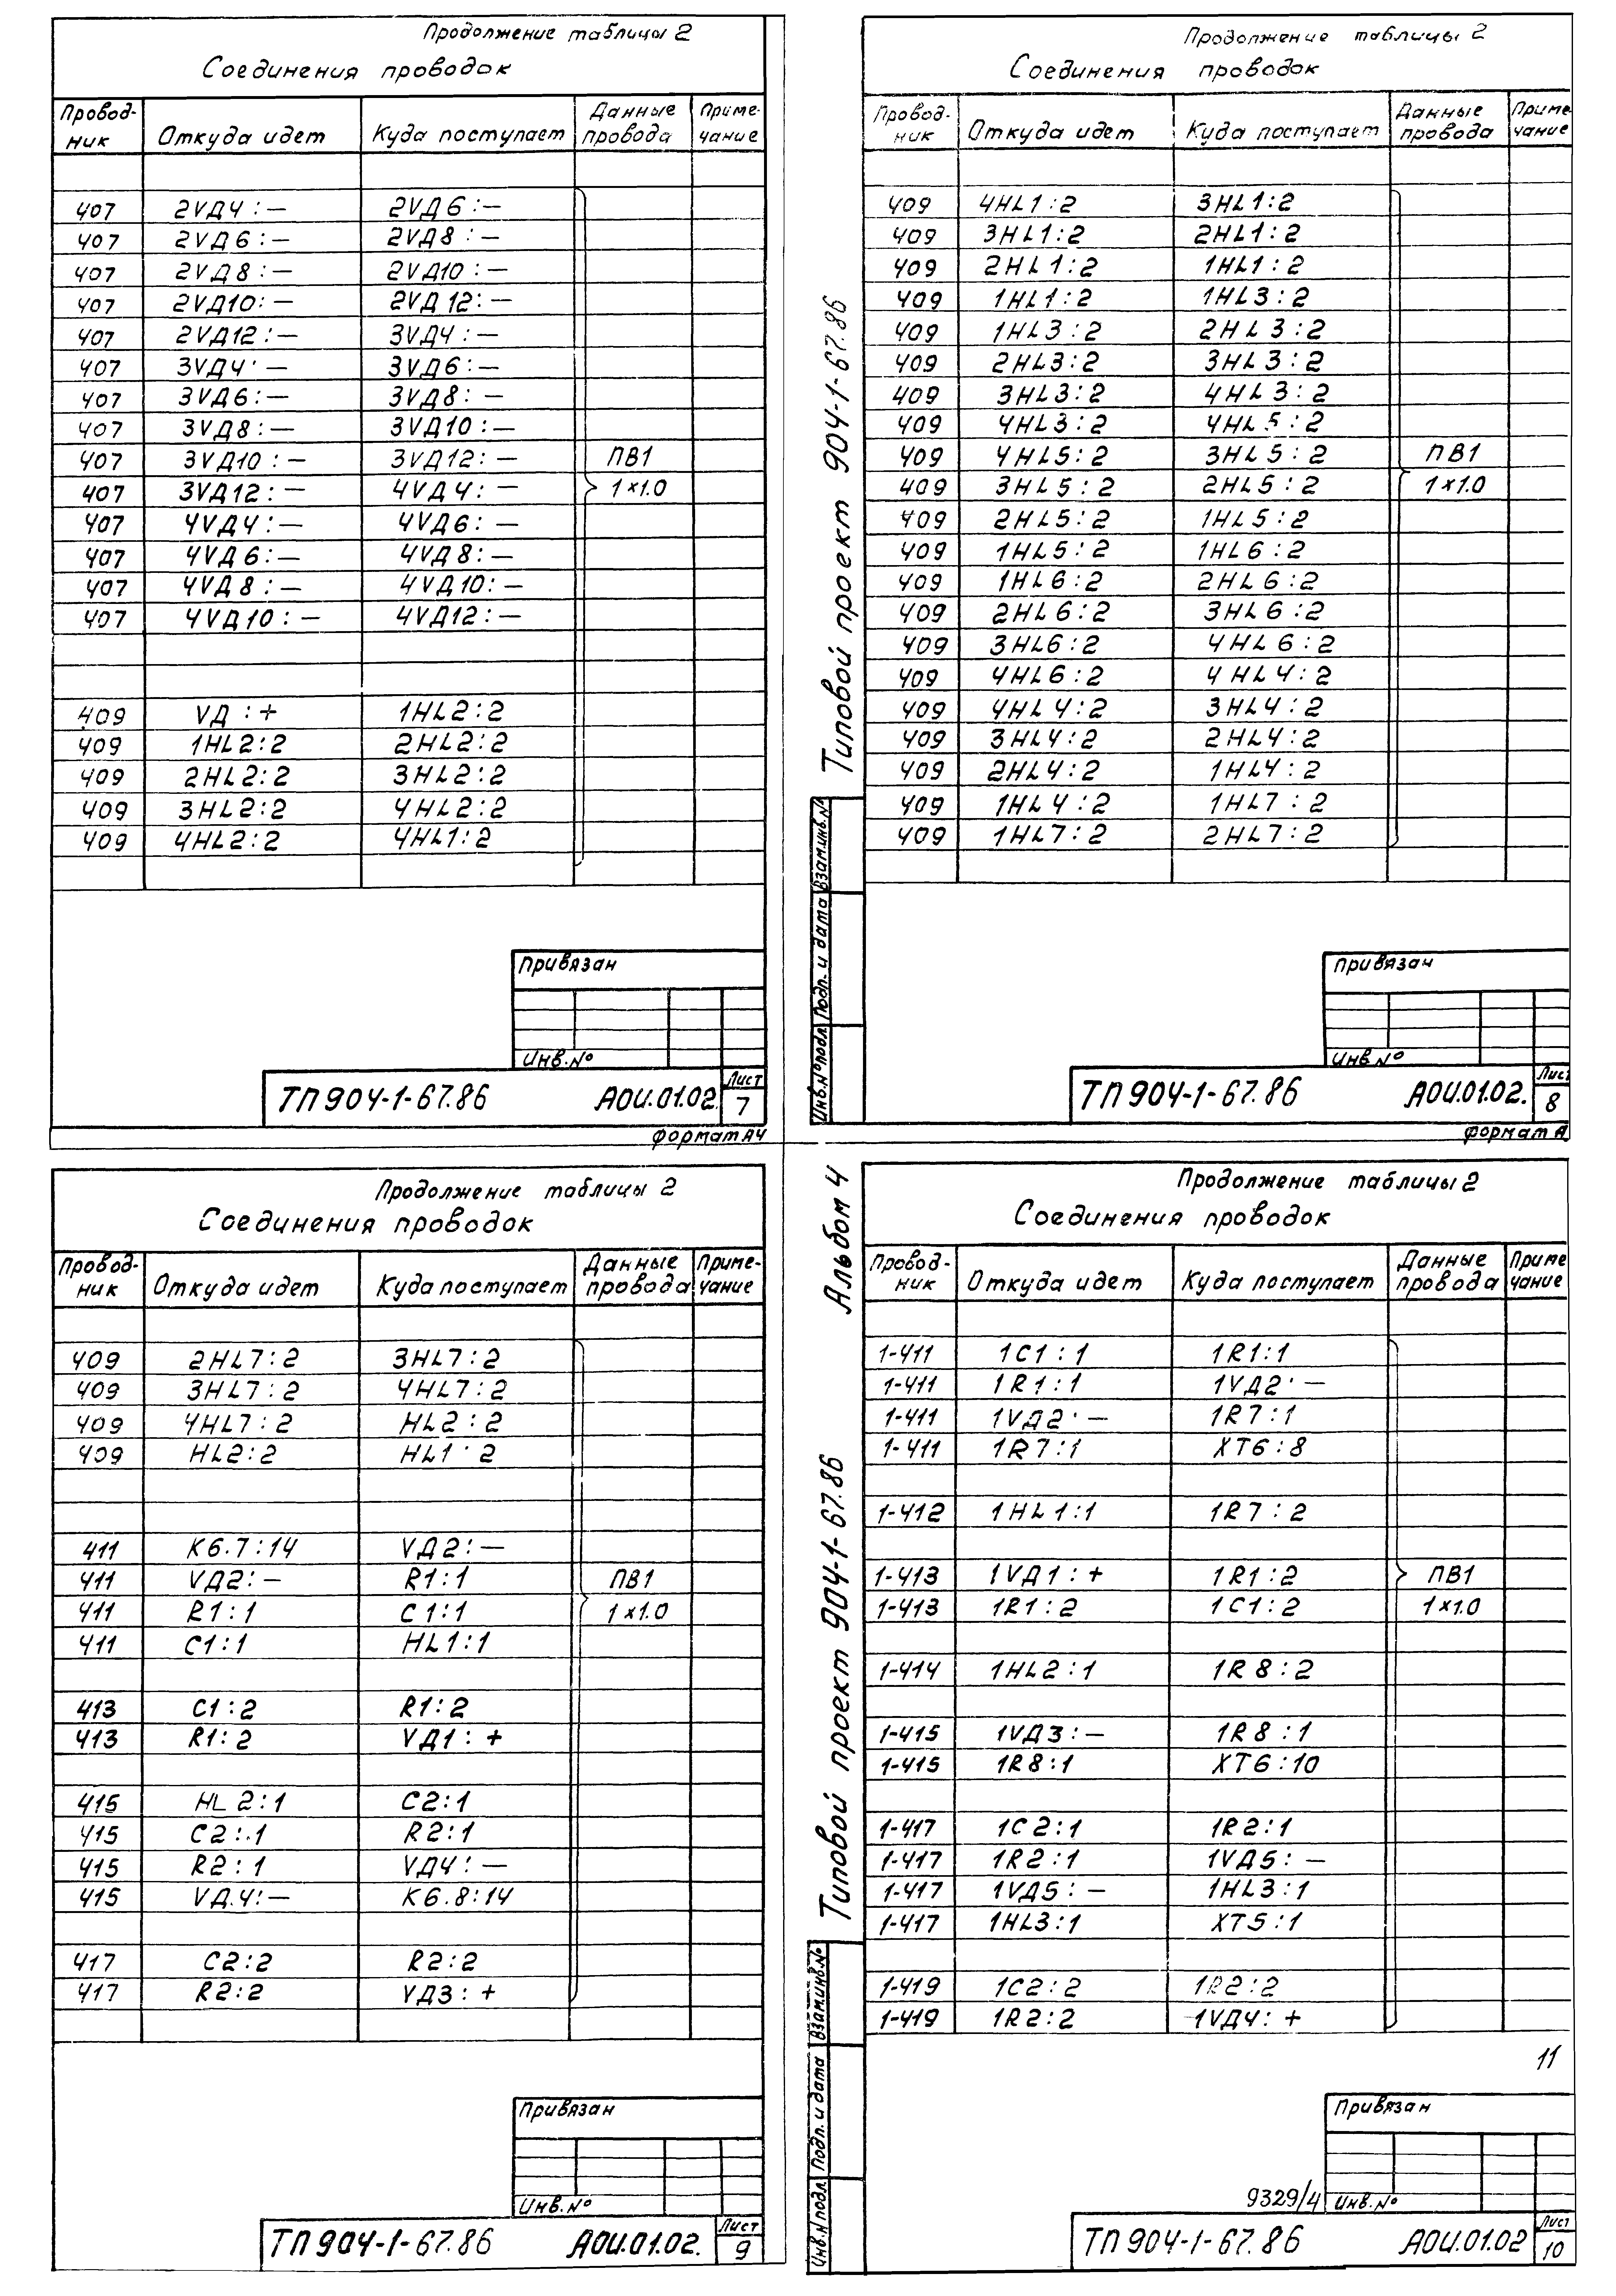 Продолжение таблицы 2
Соединения проводок
Провод- ник Откуда идет Куда поступает Данные провода Приме- чание
407 2VД4:— 2VД6:—
407 2VД6:— 2VД8:—
407 2VД8:— 2VД10:—
407 2VД10:— 2VД12:—
407 2VД12:— 3VД4:—
407 3VД4·— 3VД6:—
407 3VД6:— 3VД8:—
407 3VД8:— 3VД10:—
407 3VД10:— 3VД12:— ПВ1
407 3VД12:— 4VД4:— 1×1.0
407 4VД4:— 4VД6:—
407 4VД6:— 4VД8:—
407 4VД8:— 4VД10:—
407 4VД10:— 4VД12:—
409 VД:+ 1HL2:2
409 1HL2:2 2HL2:2
409 2HL2:2 3HL2:2
409 3HL2:2 4HL2:2
409 4HL2:2 4HL1:2
Привязан
Инв.№
ТП904-1-67.86 АОИ.01.02. Лист 7
Формат А4
Продолжение таблицы 2
Соединения проводок
Провод- ник Откуда идет Куда поступает Данные провода Приме- чание
409 4HL1:2 3HL1:2
409 3HL1:2 2HL1:2
409 2HL1:2 1HL1:2
409 1HL1:2 1HL3:2
409 1HL3:2 2HL3:2
409 2HL3:2 3HL3:2
409 3HL3:2 4HL3:2
409 4HL3:2 4HL5:2
409 4HL5:2 3HL5:2 ПВ1
409 3HL5:2 2HL5:2 1×1.0
409 2HL5:2 1HL5:2
409 1HL5:2 1HL6:2
409 1HL6:2 2HL6:2
409 2HL6:2 3HL6:2
409 3HL6:2 4HL6:2
409 4HL6:2 4HL4:2
409 4HL4:2 3HL4:2
409 3HL4:2 2HL4:2
409 2HL4:2 1HL4:2
409 1HL4:2 1HL7:2
409 1HL7:2 2HL7:2
Типовой проект 904-1-67.86
Взам.инв.№
Подп. и дата
Инв.№подл.
Привязан
Инв.№
ТП904-1-67.86 АОИ.01.02. Лист 8
Формат А
Продолжение таблицы 2
Соединения проводок
Провод- ник Откуда идет Куда поступает Данные провода Приме- чание
409 2HL7:2 3HL7:2
409 3HL7:2 4HL7:2
409 4HL7:2 HL2:2
409 HL2:2 HL1·2
411 К6.7:14 VД2:—
411 VД2:— R1:1 ПВ1
411 R1:1 C1:1 1×1.0
411 C1:1 HL1:1
413 C1:2 R1:2
413 R1:2 VД1:+
415 HL2:1 C2:1
415 C2:1 R2:1
415 R2:1 VД4:—
415 VД.4:— К6.8:14
417 C2:2 R2:2
417 R2:2 VД3:+
Привязан
Инв.№
ТП904-1-67.86 АОИ.01.02. Лист 9
Альбом 4
Продолжение таблицы 2
Соединения проводок
Провод- ник Откуда идет Куда поступает Данные провода Приме чание
1-411 1C1:1 1R1:1
1-411 1R1:1 1VД2·—
1-411 1VД2·— 1R7:1
1-411 1R7:1 XT6:8
1-412 1HL1:1 1R7:2
1-413 1VД1:+ 1R1:2 ПВ1
1-413 1R1:2 1C1:2 1×1.0
1-414 1HL2:1 1R8:2
1-415 1VД3:— 1R8:1
1-415 1R8:1 XT6:10
1-417 1C2:1 1R2:1
1-417 1R2:1 1VД5:—
1-417 1VД5:— 1HL3:1
1-417 1HL3:1 XT5:1
1-419 1C2:2 1R2:2
1-419 1R2:2 1VД4:+
11
Типовой проект 904-1-67.86
Взам.инв.№
Подп. и дата
Инв.№подл.
Привязан
9329/4 Инв.№
ТП904-1-67.86 АОИ.01.02 Лист 10